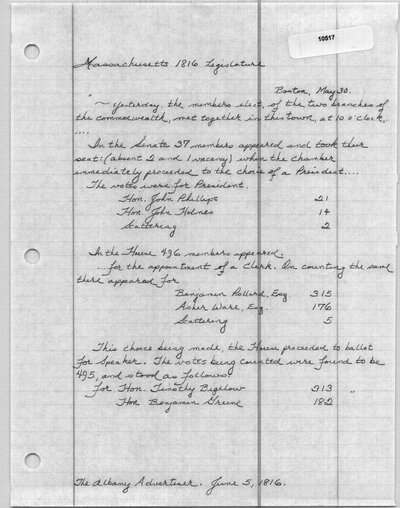 10517
Massachusetts 1816 Legislature
Boston, May 30.
"
~ Yesterday, the members elect, of the two branches of
the commonwealth, met together in this town, at 10 o'clock.
....
In the Senate 37 members appeared and took their
seat: (absent 2 and 1 vacancy) when the chamber
immediately proceeded to the choice of a President....
The votes were for President,
Hon. John Phillips 21
Hon. John Holmes 14
Scattering 2
In the House 496 members appeared.
....for the appointment of a Clerk. On counting the same
there appeared for
Benjamin Pollard, Esq. 315
Asher Ware, Esq. 176
Scattering 5
This choice being made, the House proceeded to ballot
for Speaker. The votes being counted were found to be
495, and stood as follows:
for Hon. Timothy Bigelow 313 "
Hon Benjamin Greene 182
The Albany Advertiser. June 5, 1816.